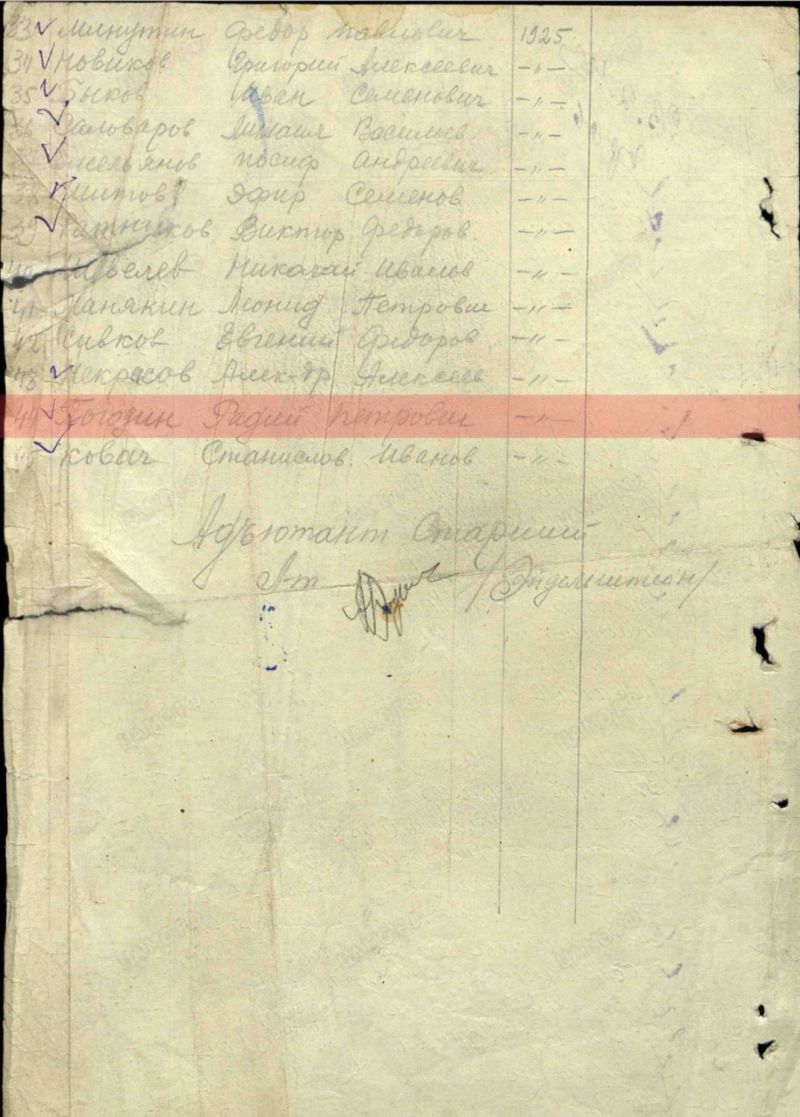 33 Минутин Федор Павлович 1925
34 Новиков Григорий Алексеевич -"-
35 Быков Иван Семенович -"-
36 Саловаров Михаил Васильев -"-
Емельянов Иосиф Андреевич -"-
38 Шитов Эфир Семенов -"-
39 Виктор Федоров -"-
40 Николай Иванов -"-
41 Манякин Леонид Петрович -"-
42 Сивков Евгений Федоров -"-
43 Некрасов Алек-др Алексеев -"-
44 Погодин Радий Петрович -"-
45 Ковач Станислов Иванов -"-
Адъютант Старший
Л-т